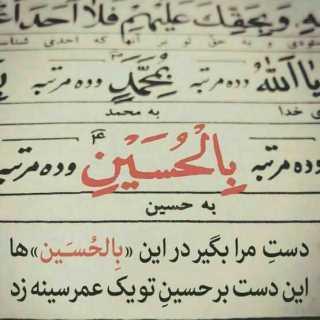 وَبِحَقِّكَ عَلَيْهِمْ فَلَا أَحَدَ
و به حق تو بر آنها که احدی شناسا
یا اَللّٰهُ وده مرتبه بِمُحَمَّدٍ وده مرتبه
ی خدا به محمد
وده مرتبه بِالْحُسَیْنِ وده مرتبه
به حسین
دستِ مرا بگیر در این «بِالحُسَین»ها
این دست بر حسینِ تو یک عمر سینه زد